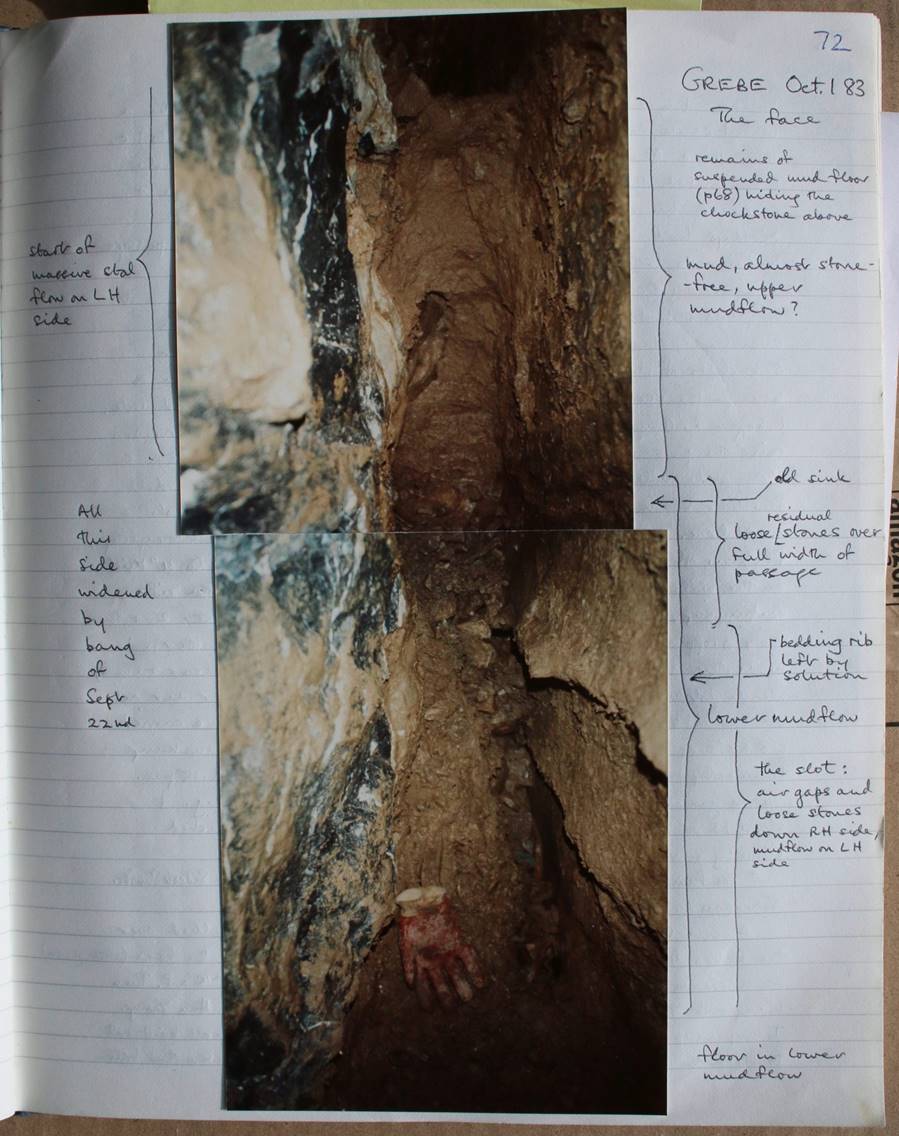 72
GREBE Oct. 1 83
The face
remains of
suspended mud floor
(p68) hiding the
chockstone above
start of
massive stal
flow on LH
side
mud, almost stone-
-free, upper
mudflow?
old sink
residual
loose/stones over
full width of
passage
All
this
side
widened
by
bang
of
Sept
22nd
bedding rib
left by
solution
lower mudflow
the slot:
air gaps and
loose stones
down RH side,
mudflow on LH
side
floor in lower
mudflow
amazon